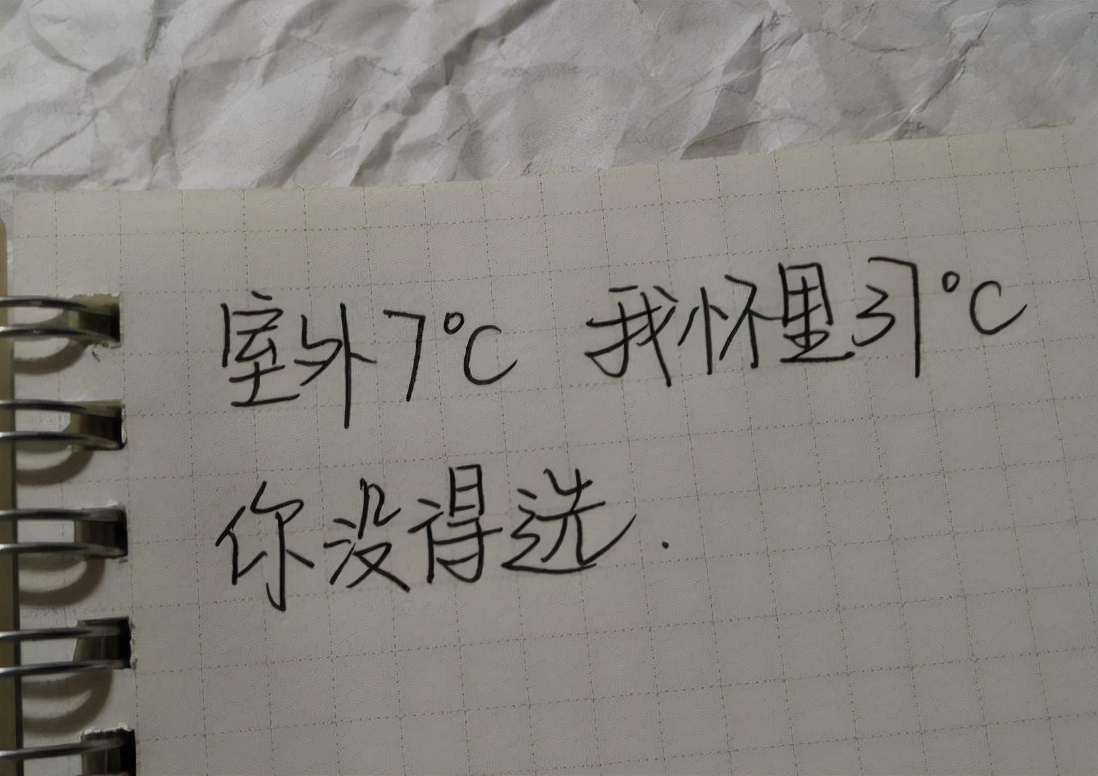 室外7℃ 我怀里37℃
你没得选.